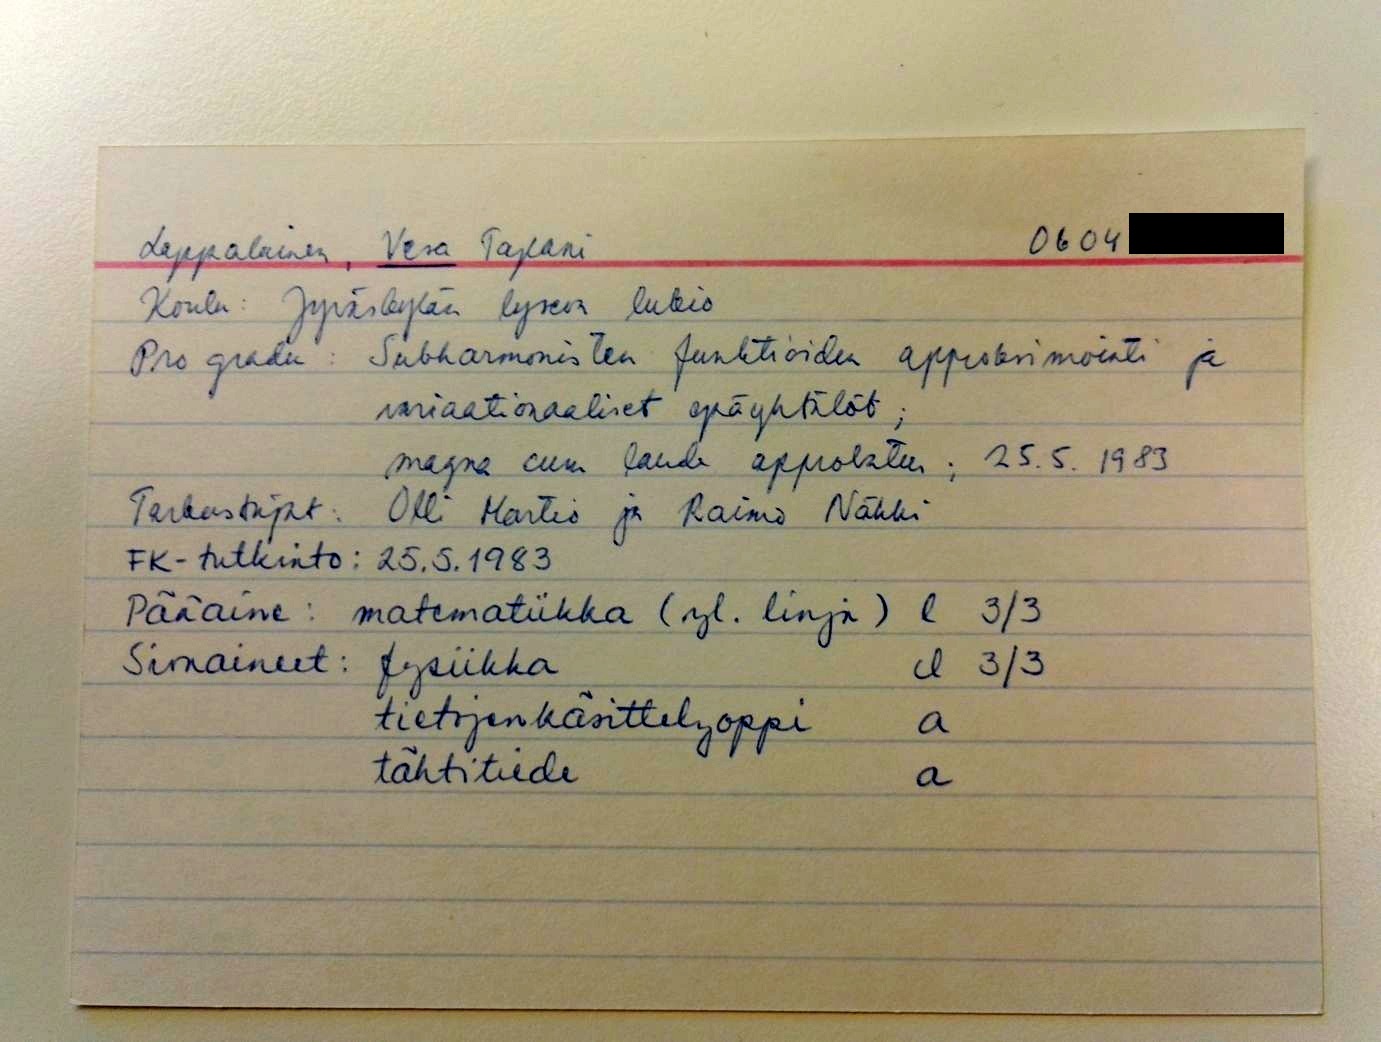 Lappalainen, Vesa Tapani 0604
Koulu: Jyväskylän lyseon lukio
Pro gradu: Subharmonisten funktioiden approksimointi ja
variaationaaliset epäyhtälöt;
magna cum laude approbatur; 25.5. 1983
Tarkastajat: Olli Martio ja Raimo Näkki
FK-tutkinto: 25.5.1983
Pääaine: matematiikka (yl. linja) l 3/3
Sivuaineet: fysiikka cl 3/3
tietojenkäsittelyoppi a
tähtitiede a